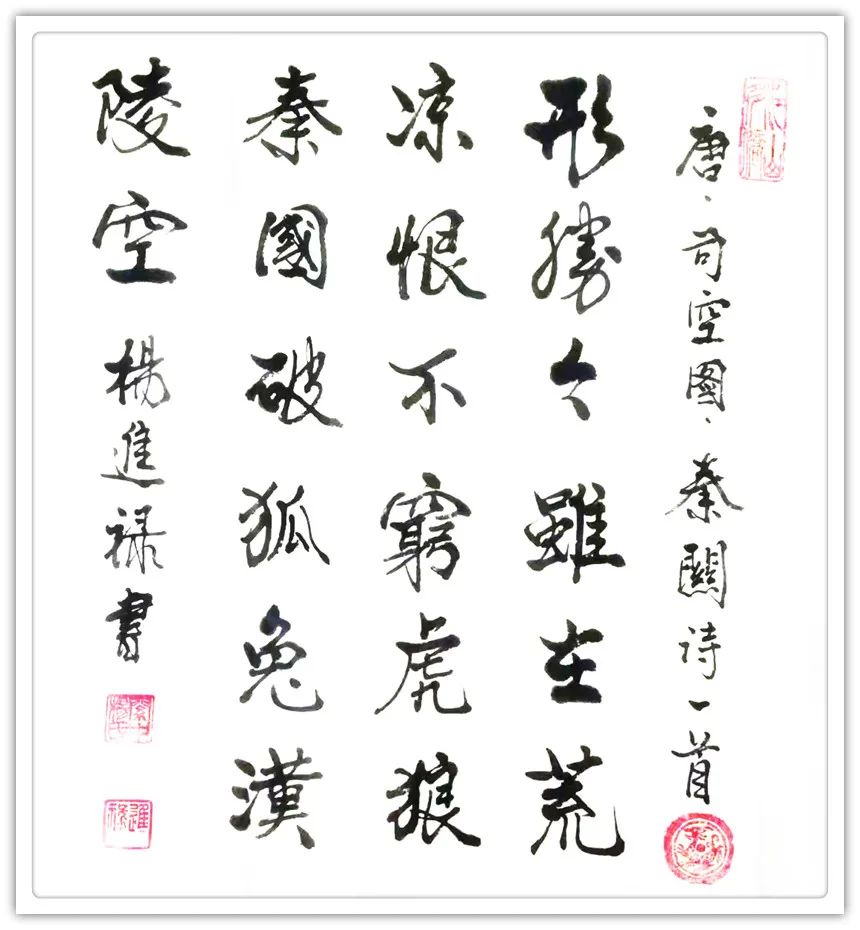 唐、司空图、秦關诗一首
形勝今雖在荒
凉恨不窮虎狼
秦國破狐兔漢
陵空
楊進禄書